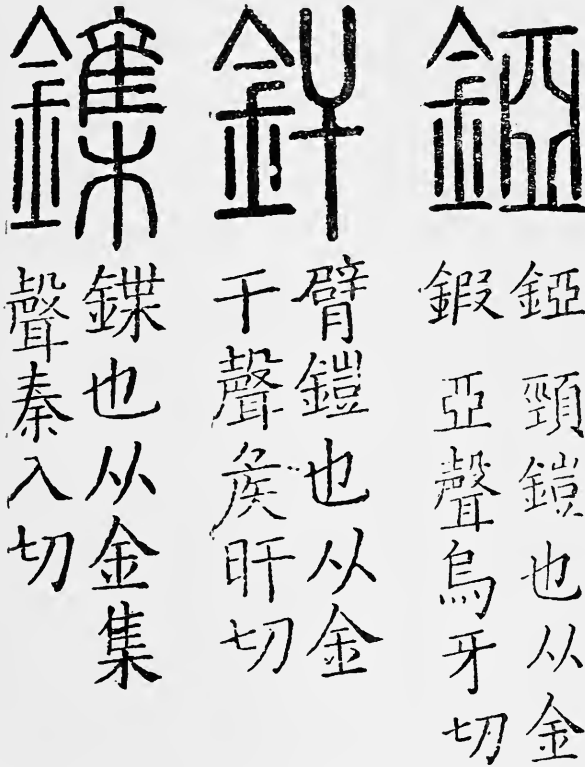 錏
錏鍜頸鎧也从金
亞聲烏牙切
釬
臂鎧也从金
干聲矦旰切
鏶
鍱也从金集
聲秦入切